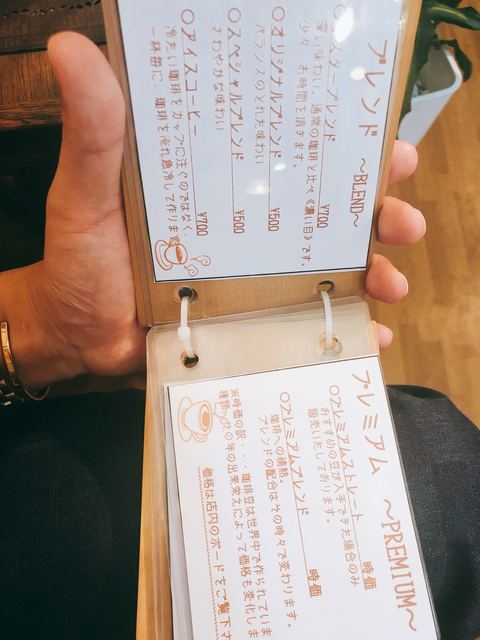 ブレンド ～BLEND～
○マスターブレンド ¥700
深い味わい。通常の珈琲と比べ《濃い目》です。
少々、お時間を頂きます。
○オリジナルブレンド ¥500
バランスのとれた味わい
○スペシャルブレンド ¥500
さわやかな味わい
○アイスコーヒー ¥700
冷たい珈琲をカップに注ぐのではなく、
一杯毎に、珈琲を淹れ急冷して作りま
プレミアム ～PREMIUM～
○プレミアムストレート 時価
おすすめの豆が入手できた場合のみ
販売いたしております。
○プレミアムブレンド 時価
珈琲への情熱。
ブレンドの配合はその時々で変わります。
※時価の訳・・・珈琲豆は世界中で作られていま
種類、その年の出来栄えによって価格も変化しま
価格は店内のボードをご覧下さ